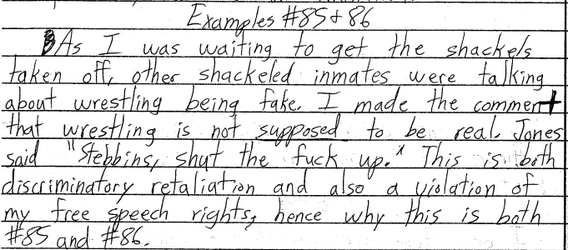 Examples #85+86
As I was waiting to get the shackels
taken off, other shackeled inmates were talking
about wrestling being fake. I made the comment
that wrestling is not supposed to be real. Jones
said "Stebbins, shut the fuck up." This is both
discriminatory retaliation and also a violation of
my free speech rights, hence why this is both
#85 and #86.